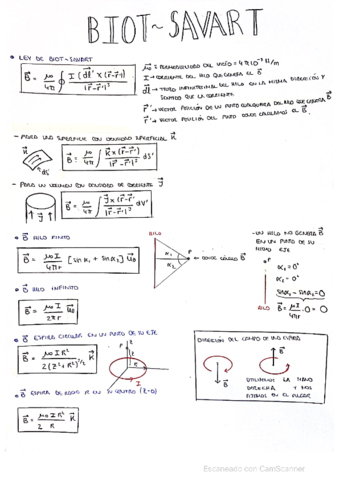 BIOT~SAVART
• LEY DE BIOT~SAVART
B⃗ = μ₀/4π ∮ I (dl⃗' × (r⃗-r⃗'))/|r⃗-r⃗'|³
μ₀ = PERMEABILIDAD DEL VACÍO = 4π10⁻⁷
I → CORRIENTE DEL HILO QUE GENERA EL B⃗
dl⃗' → TROZO INFINITESIMAL DEL HILO EN LA MISMA DIRECCIÓN Y
SENTIDO QUE LA CORRIENTE.
r⃗' → VECTOR POSICIÓN DE UN PUNTO CUALQUIERA DEL HILO QUE GENERA B⃗
r⃗ → VECTOR POSICIÓN DEL PUNTO DONDE CALCULAMOS EL B⃗.
- PARA UNA SUPERFICIE CON DENSIDAD SUPERFICIAL K⃗
K⃗
dS'
B⃗ = μ₀/4π ∫ K⃗ × (r⃗-r⃗')/|r⃗-r⃗'|³ dS'
- PARA UN VOLUMEN CON DENSIDAD DE CORRIENTE J⃗
J⃗
B⃗ = μ₀/4π ∫ J⃗ × (r⃗-r⃗')/|r⃗-r⃗'|³ dV'
• B⃗ HILO FINITO
B⃗ = μ₀I/4πr [sin α₁ + sin α₂] u⃗
HILO
α₁
α₂
P
← DONDE CALCULO B⃗
- UN HILO NO GENERA B⃗
EN UN PUNTO DE SU
MISMO EJE
P
α₁ = 0°
α₂ = 0°
HILO
sin α₁ - sin α₂ = 0
B⃗ = μ₀I/4πr · 0 = 0
• B⃗ HILO INFINITO
B⃗ = μ₀I/2πr u⃗
• B⃗ ESPIRA CIRCULAR EN UN PUNTO DE SU EJE
B⃗ = μ₀IR²/2(Z²+R²)^3/2 K⃗
P
Z
R
I
DIRECCIÓN DEL CAMPO DE UNA ESPIRA
B⃗
B⃗
UTILIZAMOS LA MANO
DERECHA Y NOS
FIJAMOS EN EL PULGAR
• B⃗ ESPIRA DE RADIO R EN SU CENTRO (Z=0)
B⃗ = μ₀I R²/2 R K⃗
Escaneado con CamScanner